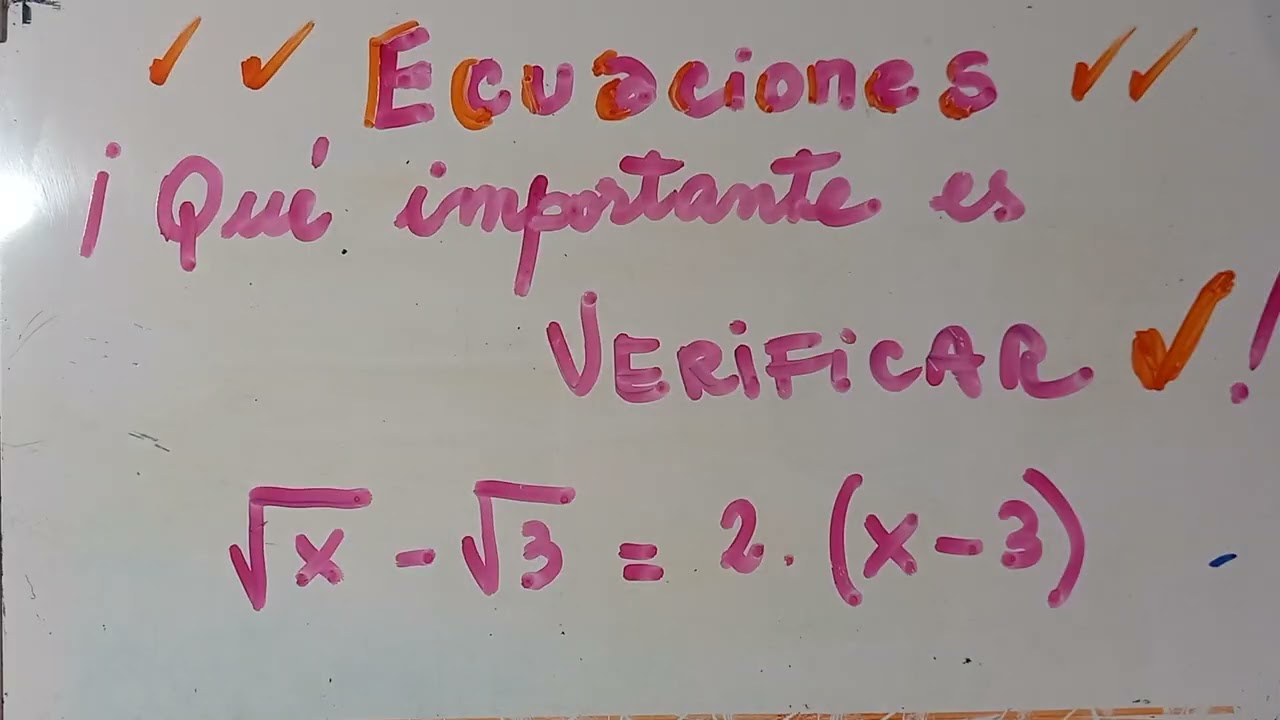 Ecuaciones
¡Qué importante es
VERIFICAR!
√x - √3 = 2. (x-3)